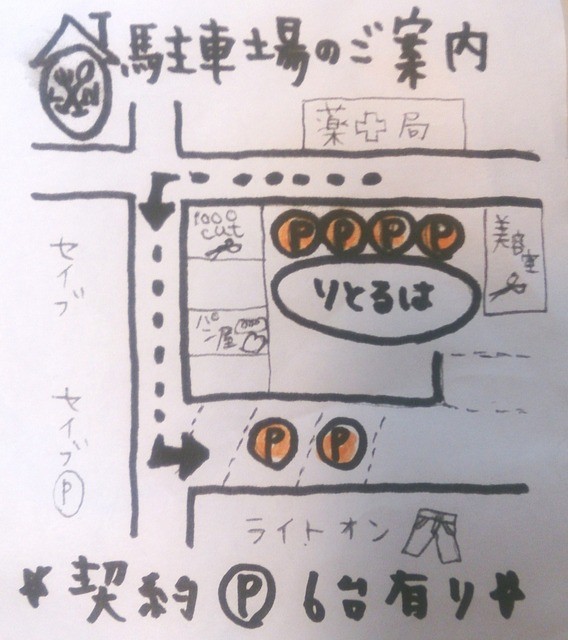 駐車場のご案内
薬局
1000
cut
P P P P
美容室
りとるは
パン屋
セイブ
セイブ
P
P P
ライトオン
契約 P 6台有り